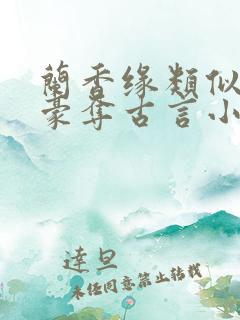 蘭香缘類似
豪夺古言小
達旦
未任同意禁止转载